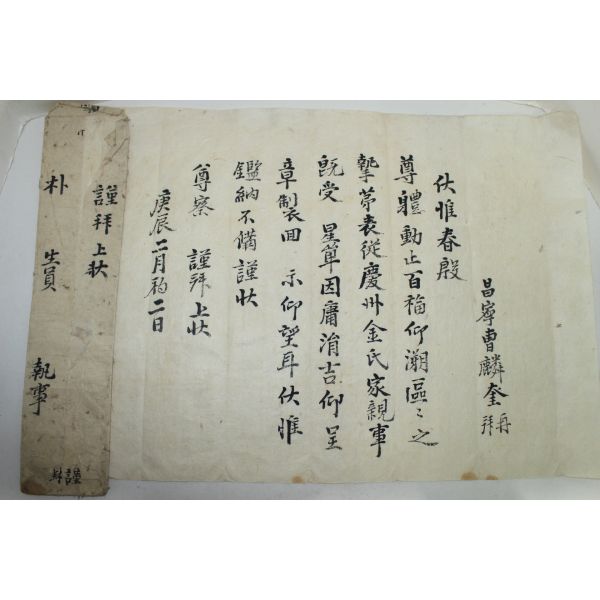 昌寧曺麟奎 再拜
伏惟春殷
尊體動止百福仰溯區〻之
摯第表從慶州金氏家親事
旣受 星單因庸涓吉仰呈
章製回 示仰望耳伏惟
鑑納不備謹狀
尊察 謹拜上狀
庚辰二月初二日
謹拜上狀
朴 生員 執事
謹